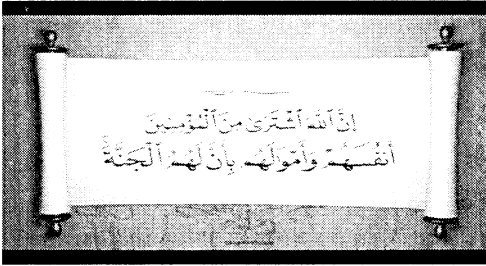 إِنَّ ٱللَّهَ ٱشْتَرَىٰ مِنَ ٱلْمُؤْمِنِينَ
أَنفُسَهُمْ وَأَمْوَٰلَهُم بِأَنَّ لَهُمُ ٱلْجَنَّةَ